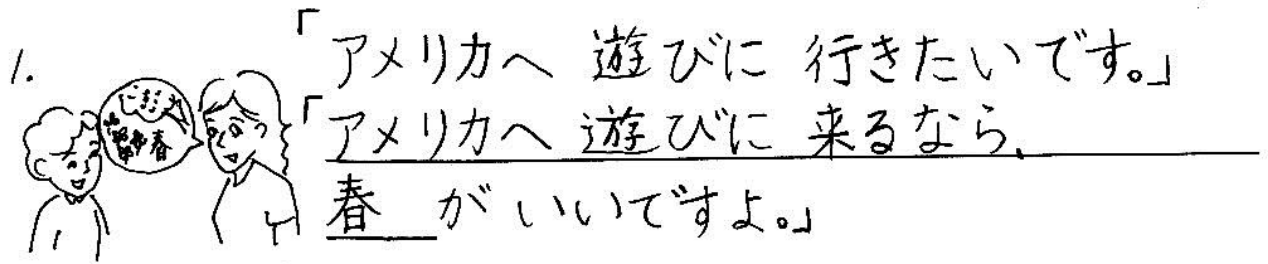 1.
「アメリカへ 遊びに 行きたいです。」
春
「アメリカへ 遊びに 来るなら、
春 が いいですよ。」